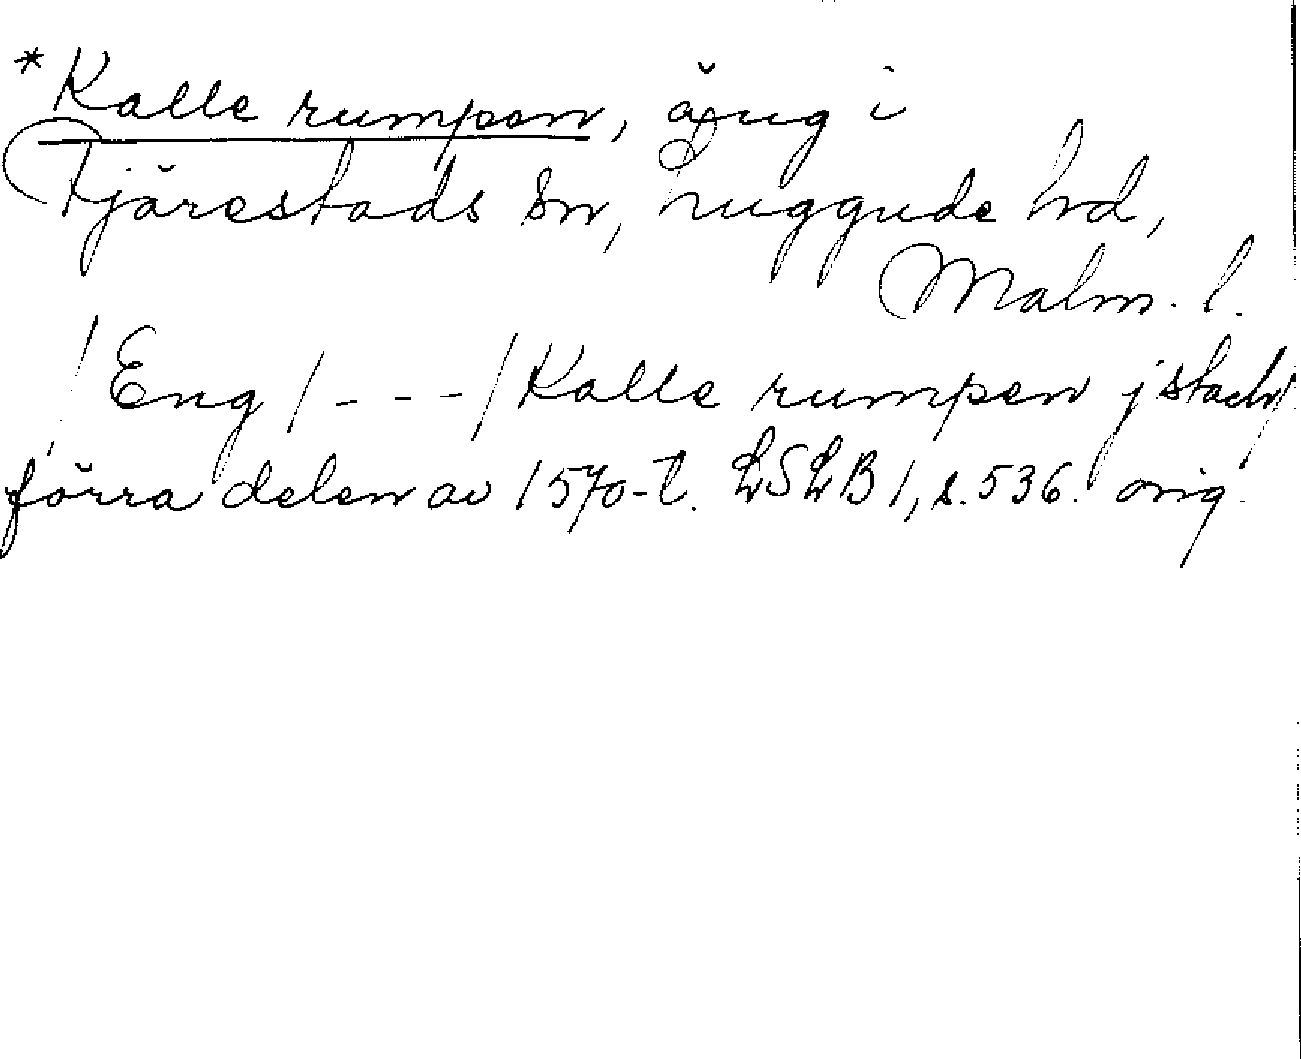 *Kalle rumpen, äng i
Fjärestads sn, Luggude hd,
Malm. l.
/Eng/---/Kalle rumpen j stach/
förra delen av 1570-t. LSLB 1, s. 536. orig.